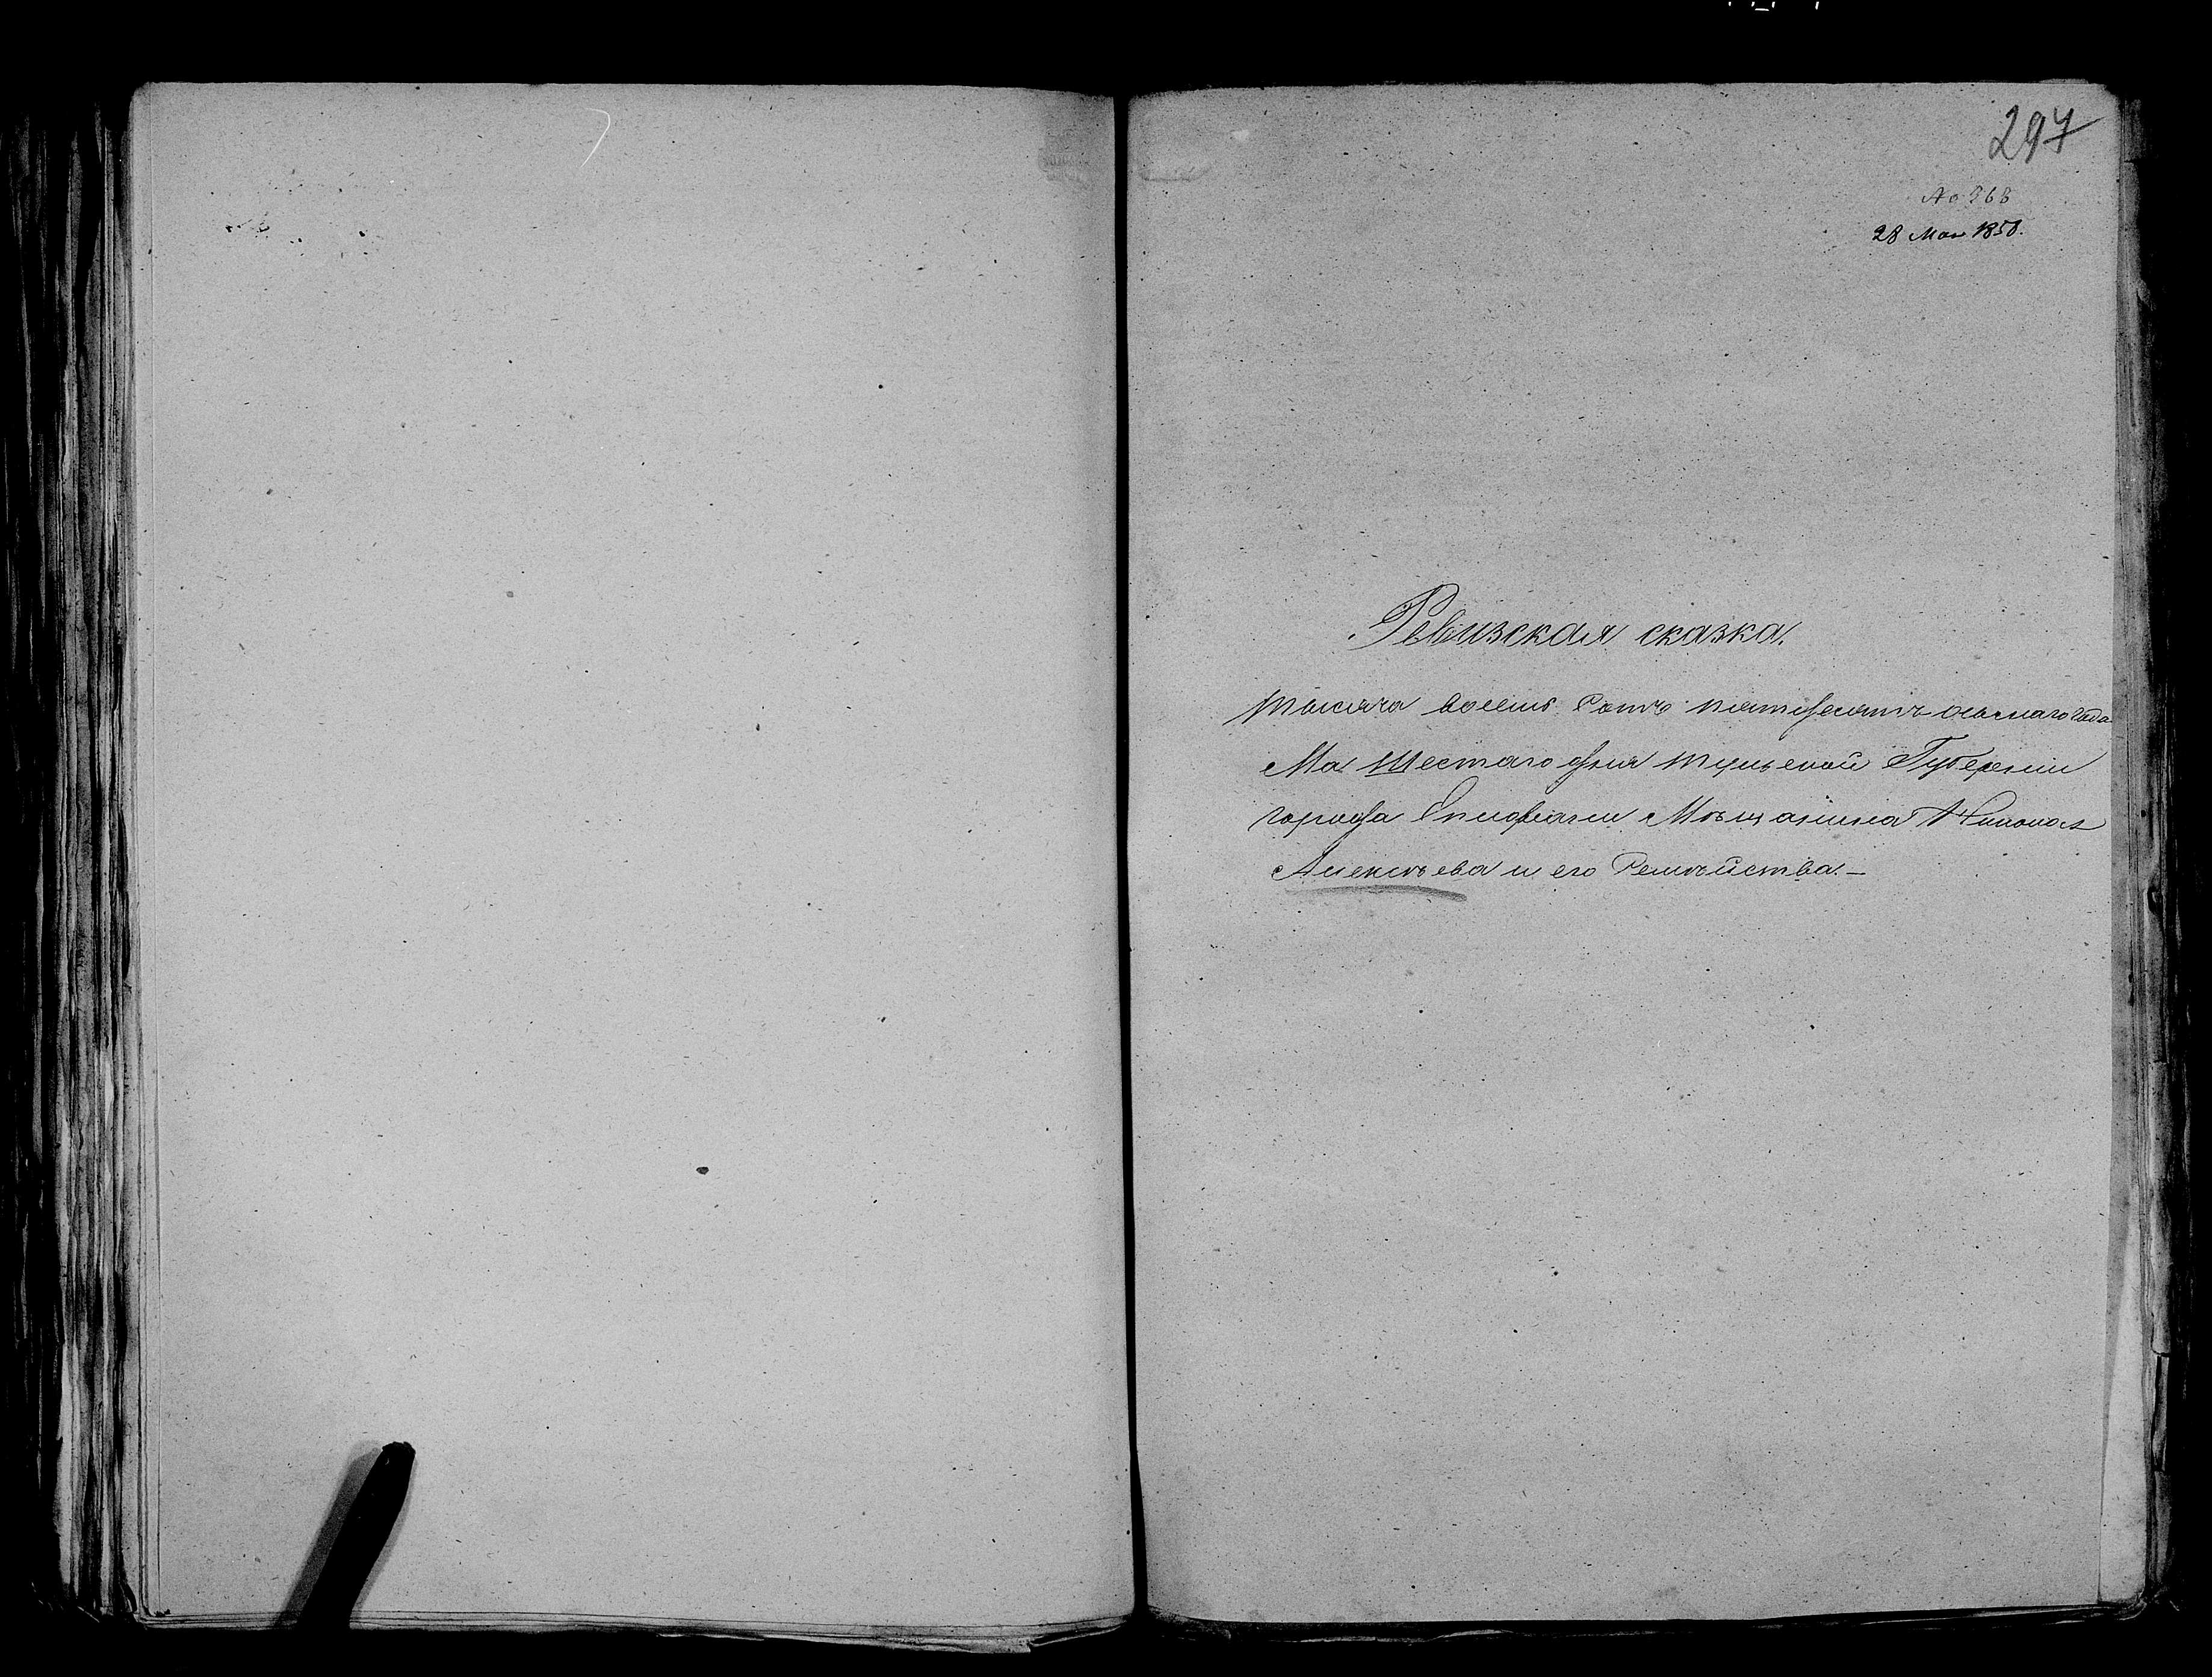 297
№ 363
28 Мая 1858.
Ревизская сказка.
тысяча восемь сотъ пятьдесятъ осьмаго года
Мая Шестаго дня тульской Губернии
города Епифани Мѣщанина
Алексѣева и его Семѣйства.—